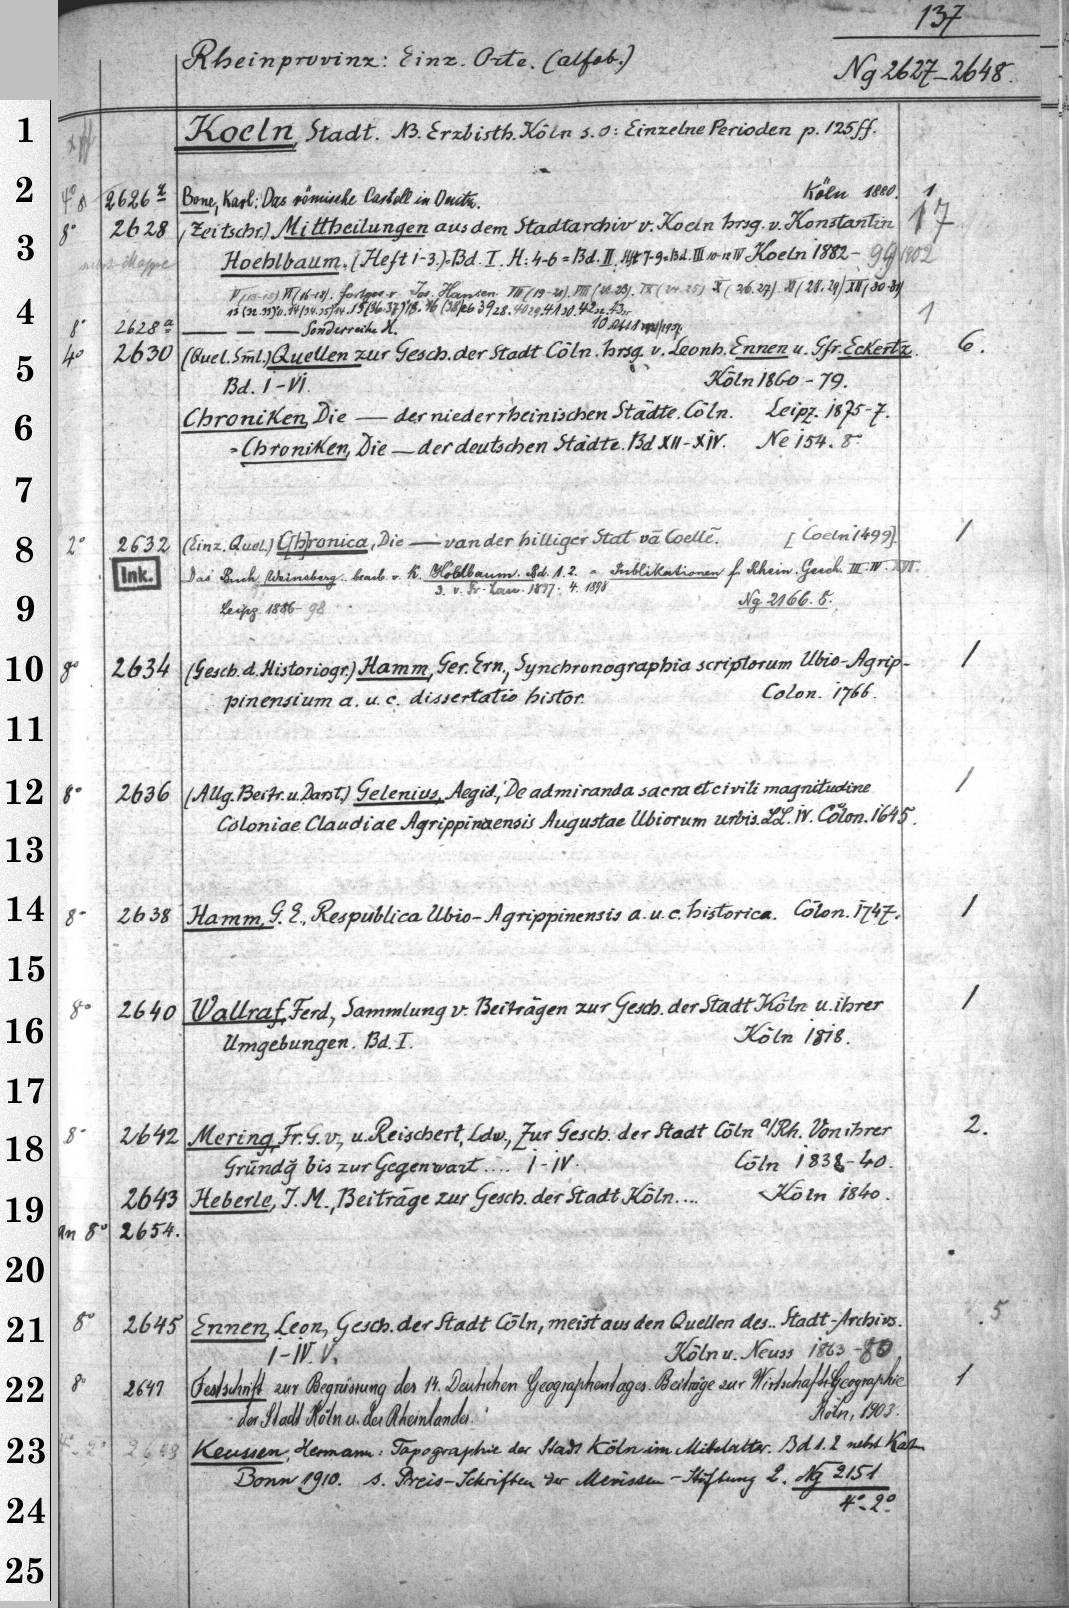 137
Rheinprovinz: Einz. Orte. (alfab.)
Ng 2627-2648.
1 Koeln, Stadt. NB. Erzbisth. Köln s. o: Einzelne Perioden p. 125ff.
2 4° 2626 Bone, Karl: Das römische Castell in Deutz. Köln 1880. 1
8° 2628 (Zeitschr.) Mittheilungen aus dem Stadtarchiv v. Koeln hrsg. v. Konstantin 17
3 nebst Mappe Hoehlbaum. (Heft 1-3.)=Bd. I. H. 4-6=Bd. II. Hft 7-9=Bd. III 10-12 IV Koeln 1882-99 1902
V (13-15) VI (16-18). fortges. v. Jos. Hansen. VII (19-21). VIII (22.23). IX (24-25) X (26.27) XI (28.29) XII (30-31)
4 8° 2628a — — — Sonderreihe H. 1
4° 2630 (Quel. Sml.) Quellen zur Gesch. der Stadt Cöln. hrsg. v. Leonh. Ennen u. Gfr. Eckertz. 6.
5 Bd. I-VI. Köln 1860-79.
6 Chroniken, Die — der niederrheinischen Städte. Cöln. Leipz. 1875-7.
= Chroniken, Die — der deutschen Städte. Bd XII-XIV. Ne 154. 8°
7
8 2° 2632 (Einz. Quel.) C[h]ronica, Die — van der hilliger Stat vā Coellē. [Coeln 1499] 1
Ink. Das Buch Weinsberg. bearb. v. K. Höhlbaum. Bd. 1. 2. = Publikationen f. Rhein. Gesch. III. IV. XVI.
3. v. Fr. Lau. 1897. 4. 1898
9 Leipz. 1886-98 Ng 2166. 8.
10 8° 2634 (Gesch. d. Historiogr.) Hamm, Ger. Ern., Synchronographia scriptorum Ubio-Agrip- 1
pinensium a. u. c. dissertatio histor. Colon. 1766.
11
12 8° 2636 (Allg. Beitr. u. Darst.) Gelenius, Aegid., De admiranda sacra et civili magnitudine 1
Coloniae Claudiae Agrippinaensis Augustae Ubiorum urbis. LL. IV. Cölon. 1645.
13
14 8° 2638 Hamm, G. E., Respublica Ubio-Agrippinensis a. u. c. historica. Cölon. 1747. 1
15
8° 2640 Wallraf, Ferd., Sammlung v. Beiträgen zur Gesch. der Stadt Köln u. ihrer 1
16 Umgebungen. Bd. I. Köln 1818.
17
18 8° 2642 Mering, Fr. G. v., u. Reischert, Ldw., Zur Gesch. der Stadt Cöln a/Rh. Von ihrer 2.
Gründg bis zur Gegenwart .... I-IV. Cöln 1838-40.
19 2643 Heberle, J. M., Beiträge zur Gesch. der Stadt Köln.... Köln 1840.
an 8° 2654.
20
21 8° 2645 Ennen, Leon, Gesch. der Stadt Cöln, meist aus den Quellen des.. Stadt-Archivs. 5
I-IV. V. Köln u. Neuss 1863-80.
22 8° 2647 Festschrift zur Begrüssung des 14. Deutschen Geographentages. Beiträge zur Wirtschafts-Geographie 1
der Stadt Köln u. des Rheinlandes. Köln, 1903.
23 4°-2° 2648 Keussen, Hermann: Topographie der Stadt Köln im Mittelalter. Bd 1. 2 nebst Kart
Bonn 1910. s. Preis-Schriften der Mevissen-Stiftung 2. Ng 2151
24 4°-2°
25